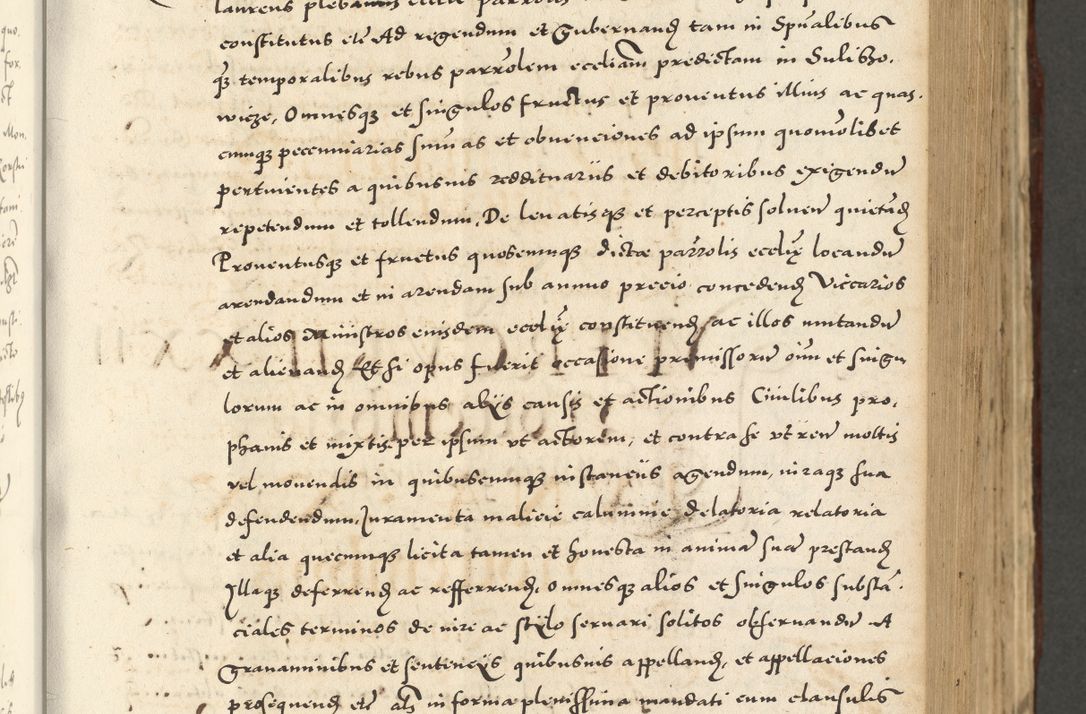 laurens plebanus ecclie parrolis
constitutus etc Ad regendum et Gubernand tam in Spualibus
q3 temporalibus rebus parrolem eccliam predictam in Suliszo.
wicze, Omnesq3 et singulos fructus et prouentus illius ac quas.
cunq3 pecunniarias sumas et obuenciones ad ipsum quomolibet
pertinentes a quibusuis reddituariis et debitoribus exigendu
repetendum et tollendum, De leuatisq3 et perceptis soluen quietand
Prouentusq3 et fructus quoscunq3 dictae parrolis eccliae locandu
arendandum et in arendam sub annuo precio concedend Viccarios
et alios Ministros eiusdem eccliae constituend ac illos mutandu
et alienand Et si opus fuerit occasione premissoru oim et singu
lorum ac in omnibus alijs causis et actionibus Ciuilibus pro,
phanis et mixtis per ipsum vt actorem, et contra se vt reu moltis
vel mouendis in quibuscunq3 instanciis agendum, iuraq3 sua
defendendum, Juramenta malicie calumnie delatoria relatoria
et alia quecunq3 licita tamen et honesta in anima sua prestand
Illaq3 deferrend ac refferrend, omnesq3 alios et singulos substa.
ciales terminos de iure ac stylo seruari solitos obseruandu A
Grauaminibus et sentencijs quibusuis appelland, et appellaciones
prosequend etc als in forma plenissima mandati cum clausulis